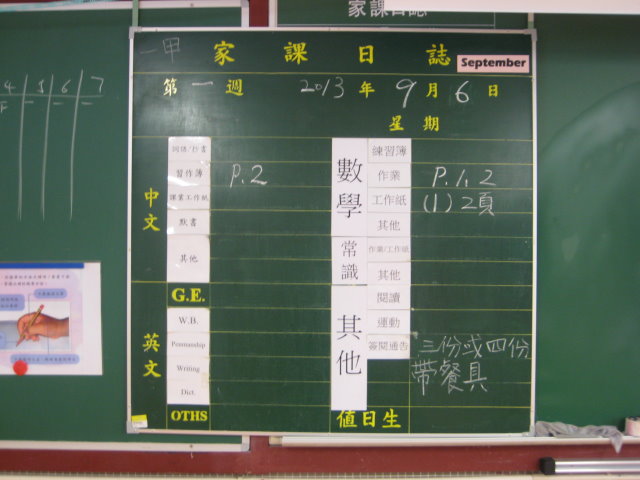 家課日誌
4 5 6 7
一甲 家課日誌
September
第一週 2013年9月6日
星期
中文
詞語/抄書
習作簿 P.2
課業工作紙
默書
其他
G.E.
英文
W.B.
Penmanship
Writing
Dict.
OTHS
數學
練習簿
作業 P.1,2
工作紙 (1) 2頁
其他
常識
作業/工作紙
其他
其他
閱讀
運動
簽閱通告 三份或四份
帶餐具
值日生